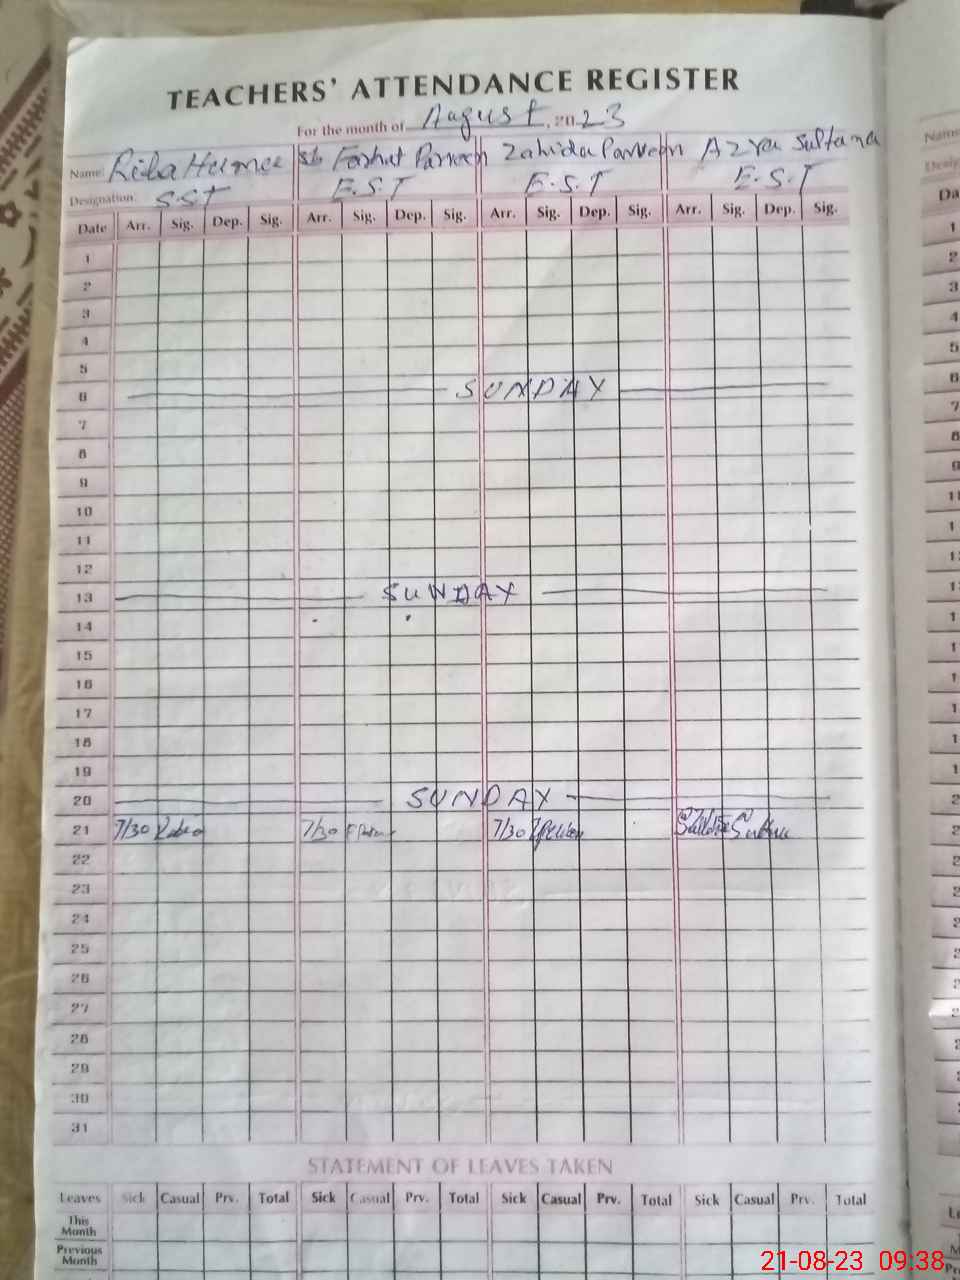 TEACHERS' ATTENDANCE REGISTER
For the month of August, 2023
Name: Farhat Parveen Zahida Parveen Azra Sultana
Designation: S.S.T E.S.T E.S.T E.S.T
Date Arr. Sig. Dep. Sig. Arr. Sig. Dep. Sig. Arr. Sig. Dep. Sig. Arr. Sig. Dep. Sig.
1
2
3
4
5
6 SUNDAY
7
8
9
10
11
12
13 SUNDAY
14
15
16
17
18
19
20 SUNDAY
21 7/30 7/30 7/30
22
23
24
25
26
27
28
29
30
31
STATEMENT OF LEAVES TAKEN
Leaves Sick Casual Prv. Total Sick Casual Prv. Total Sick Casual Prv. Total Sick Casual Prv. Total
This
Month
Previous
Month
21-08-23 09:38